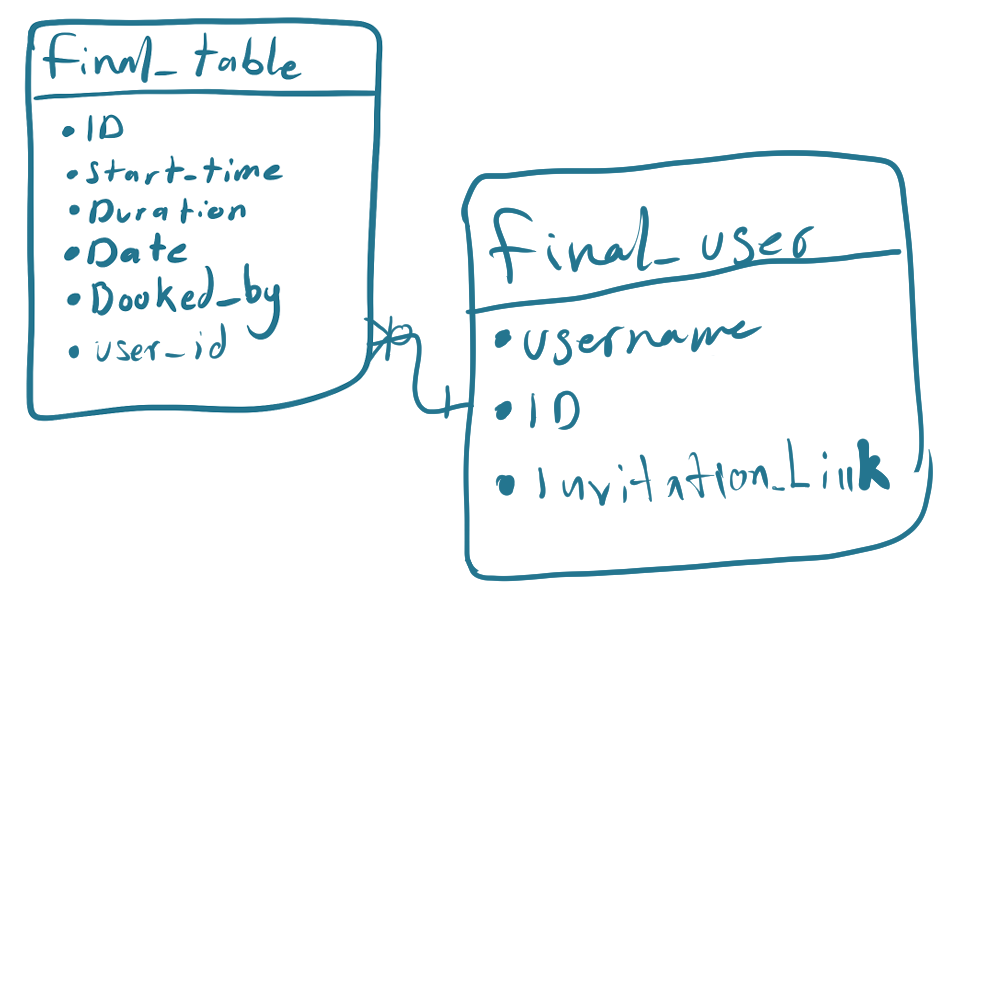 final_table
• ID
• Start_time
• Duration
• Date
• Booked_by
• user_id
final_user
• username
• ID
• Invitation_Link